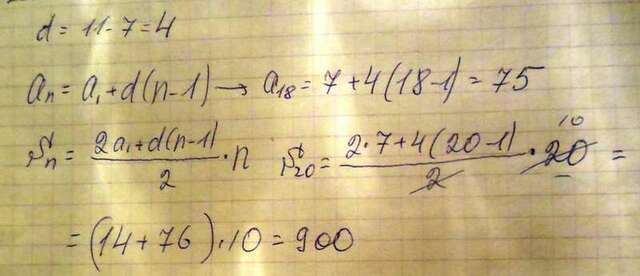 d = 11-7=4
aₙ = a₁+d(n-1) → a₁₈ = 7+4(18-1) = 75
Sₙ = (2a₁+d(n-1))/2 · n S₂₀ = (2·7+4(20-1))/2 · 20 10 =
= (14+76)·10 = 900